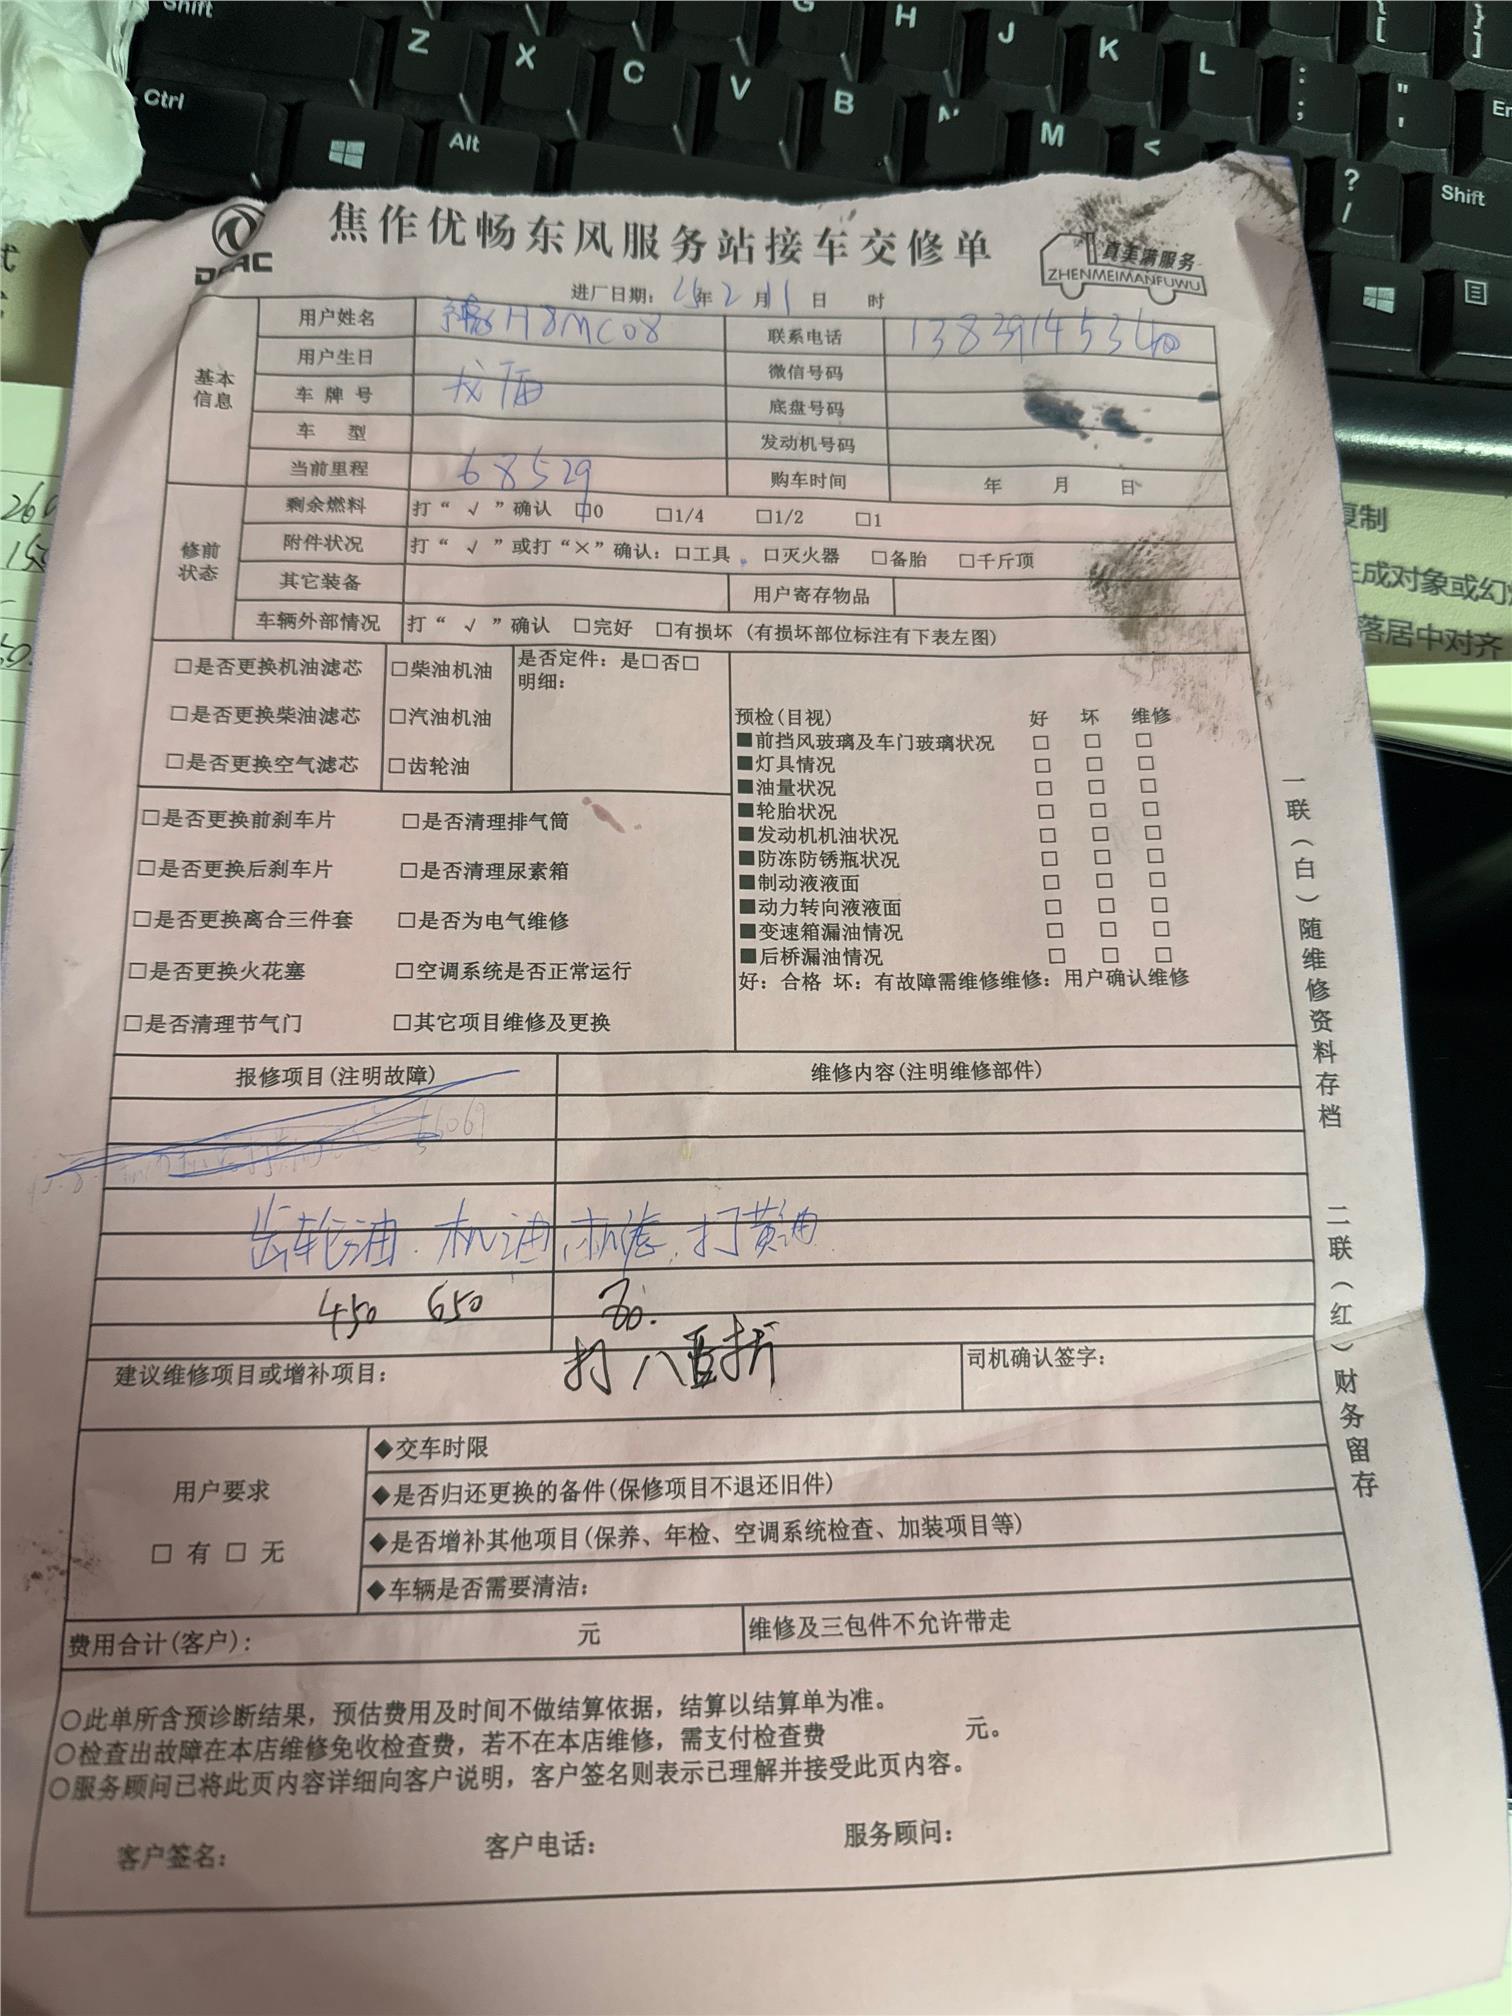 Shift
Z X C V B N M <
G H J K L : ; " ' En
Ctrl
Alt
? /
Shift
复制
生成对象或幻
落居中对齐
焦作优畅东风服务站接车交修单
真美满服务
ZHENMEIMANFUWU
进厂日期：25年2月11日 时
基本信息
用户姓名 豫H8MC08 联系电话 13839145340
用户生日 微信号码
车牌号 底盘号码
车型 发动机号码
当前里程 68529 购车时间 年 月 日
修前状态
剩余燃料 打“√”确认 □0 □1/4 □1/2 □1
附件状况 打“√”或打“×”确认：□工具 □灭火器 □备胎 □千斤顶
其它装备 用户寄存物品
车辆外部情况 打“√”确认 □完好 □有损坏（有损坏部位标注有下表左图）
□是否更换机油滤芯 □柴油机油 是否定件：是□否□
明细：
□是否更换柴油滤芯 □汽油机油
□是否更换空气滤芯 □齿轮油
□是否更换前刹车片 □是否清理排气筒
□是否更换后刹车片 □是否清理尿素箱
□是否更换离合三件套 □是否为电气维修
□是否更换火花塞 □空调系统是否正常运行
□是否清理节气门 □其它项目维修及更换
预检(目视) 好 坏 维修
■前挡风玻璃及车门玻璃状况 □ □ □
■灯具情况 □ □ □
■油量状况 □ □ □
■轮胎状况 □ □ □
■发动机机油状况 □ □ □
■防冻防锈瓶状况 □ □ □
■制动液液面 □ □ □
■动力转向液液面 □ □ □
■变速箱漏油情况 □ □ □
■后桥漏油情况 □ □ □
好：合格 坏：有故障需维修维修：用户确认维修
报修项目(注明故障) 维修内容(注明维修部件)
齿轮油.机油.机滤.打黄油
450 650
建议维修项目或增补项目： 打八五折 司机确认签字：
用户要求
□ 有 □ 无
◆交车时限
◆是否归还更换的备件(保修项目不退还旧件)
◆是否增补其他项目(保养、年检、空调系统检查、加装项目等)
◆车辆是否需要清洁：
费用合计(客户)： 元 维修及三包件不允许带走
○此单所含预诊断结果，预估费用及时间不做结算依据，结算以结算单为准。
○检查出故障在本店维修免收检查费，若不在本店维修，需支付检查费 元。
○服务顾问已将此页内容详细向客户说明，客户签名则表示已理解并接受此页内容。
客户签名： 客户电话： 服务顾问：
一联（白）随维修资料存档 二联（红）财务留存